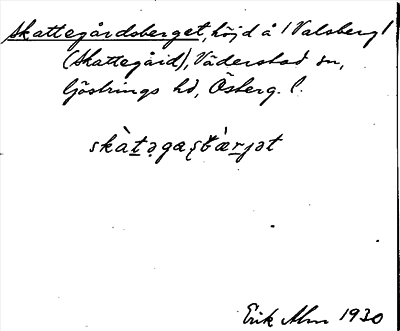 Skattegårdsberget, höjd å 1 Valsberg 1
(Skattegård), Väderstad sn,
Göstrings hd, Österg. l.
skàt̠əgaʂbæ̀r̠jət
Erik Alm 1930